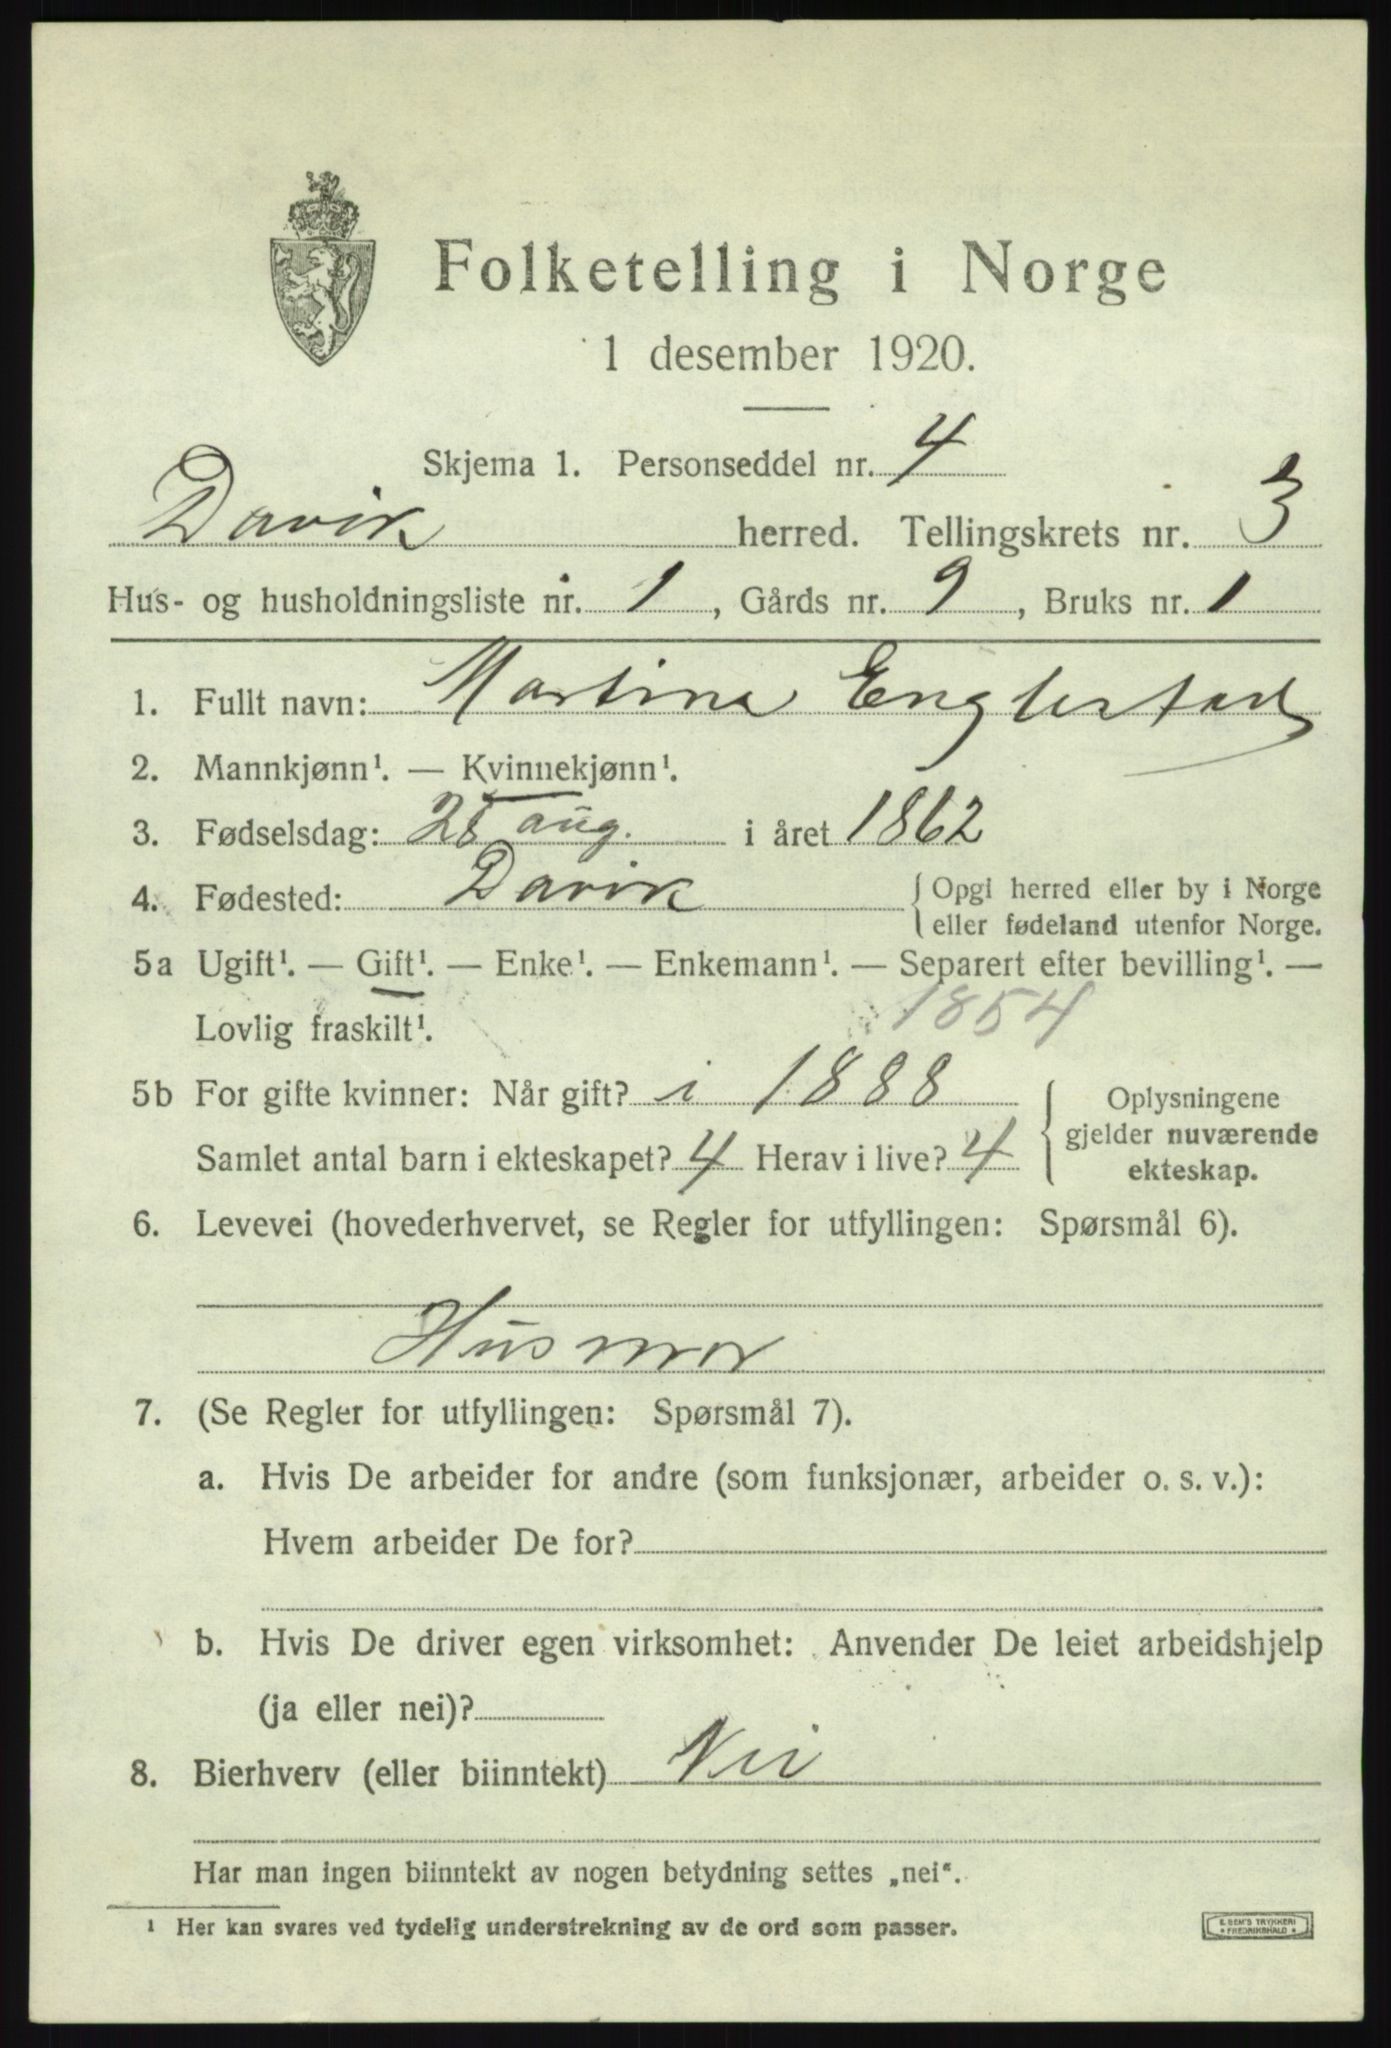 Folketelling i Norge
1 desember 1920.
Skjema 1. Personseddel nr. 4
Davik herred. Tellingskrets nr. 3
Hus- og husholdningsliste nr. 1, Gårds nr. 9, Bruks nr. 1
1. Fullt navn: Martine Englestad
2. Mannkjønn¹. — Kvinnekjønn¹.
3. Fødselsdag: 28 aug. i året 1862
4. Fødested: Davik { Opgi herred eller by i Norge
eller fødeland utenfor Norge.
5a Ugift¹. — Gift¹. — Enke¹. — Enkemann¹. — Separert efter bevilling¹. —
1854
Lovlig fraskilt¹.
5b For gifte kvinner: Når gift? i 1888 { Oplysningene
gjelder nuværende
Samlet antal barn i ekteskapet? 4 Herav i live? 4
ekteskap.
6. Levevei (hovederhvervet, se Regler for utfyllingen: Spørsmål 6).
Husmor
7. (Se Regler for utfyllingen: Spørsmål 7).
a. Hvis De arbeider for andre (som funksjonær, arbeider o. s. v.):
Hvem arbeider De for?
b. Hvis De driver egen virksomhet: Anvender De leiet arbeidshjelp
(ja eller nei)?
8. Bierhverv (eller biinntekt) Nei
Har man ingen biinntekt av nogen betydning settes „nei“.
¹ Her kan svares ved tydelig understrekning av de ord som passer.
E. SEM'S TRYKKERI
FREDRIKSHALD